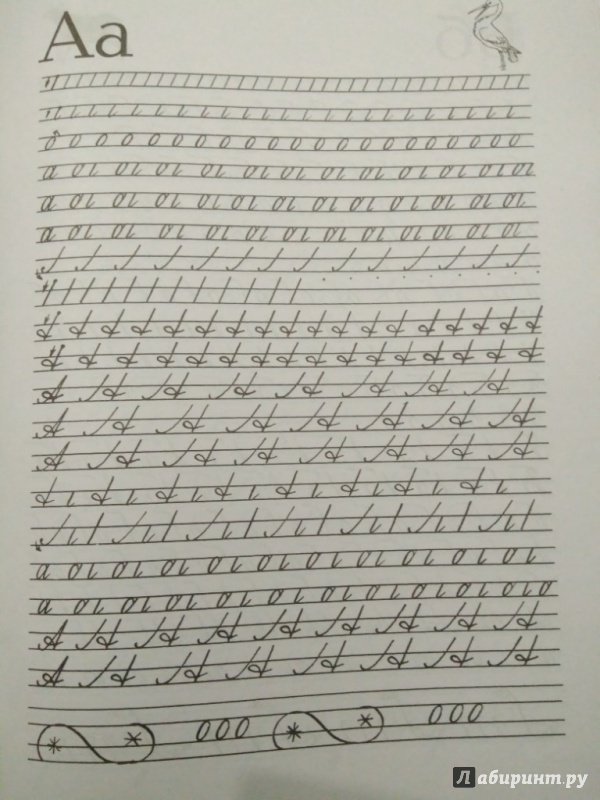 Аа
о о о о о о о о о о о о о о о о о о о о о о о о
а а а а а а а а а а а а а
а а а а а а а а а а а а а
а а а а а а а а а а а а а
А А А А А А А А
А А А А А А А А
А А А А А А А А
а а а а а а а а а а а
а а а а а а а а а а а а
А А А А А А А А А
А А А А А А А А
ООО ООО
Лабиринт.ру